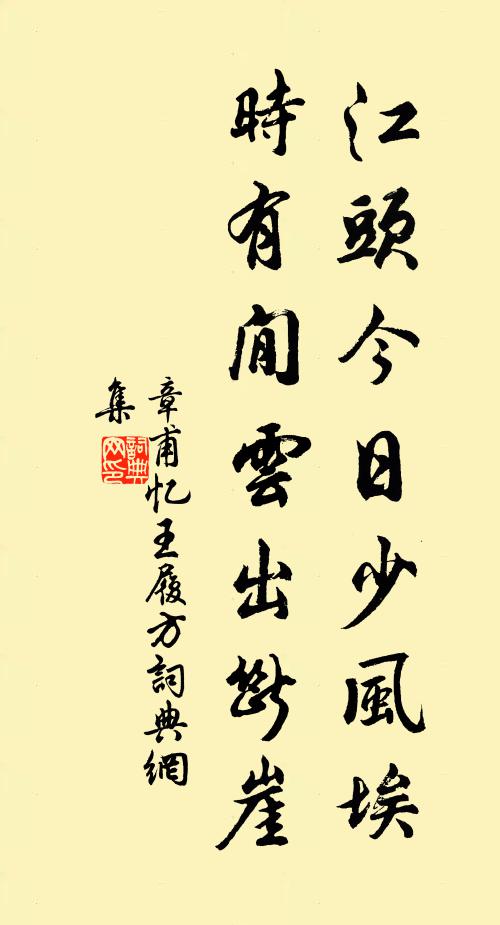 江頭今日少風埃
時有閒雲出斷崖
章甫忆王履方詞典網
集
詞典网印